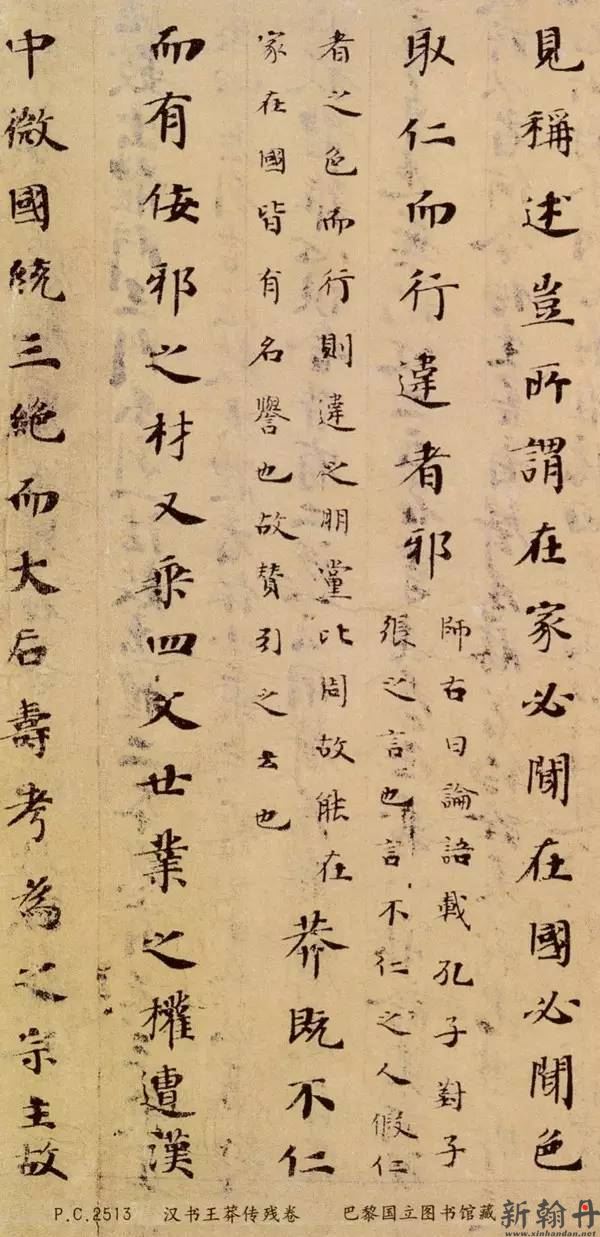 見稱述豈所謂在家必聞在國必聞色
取仁而行違者邪
師古曰論語載孔子對子
張之言也言不仁之人假仁
者之色而行則違之朋黨比周故能在
家在國皆有名譽也故贊引之云也
莽既不仁
而有佞邪之材又乘四父世業之權遭漢
中微國統三絕而大后壽考為之宗主故
P.C.2513 汉书王莽传残卷 巴黎国立图书馆藏
新翰丹
www.xinhandan.net